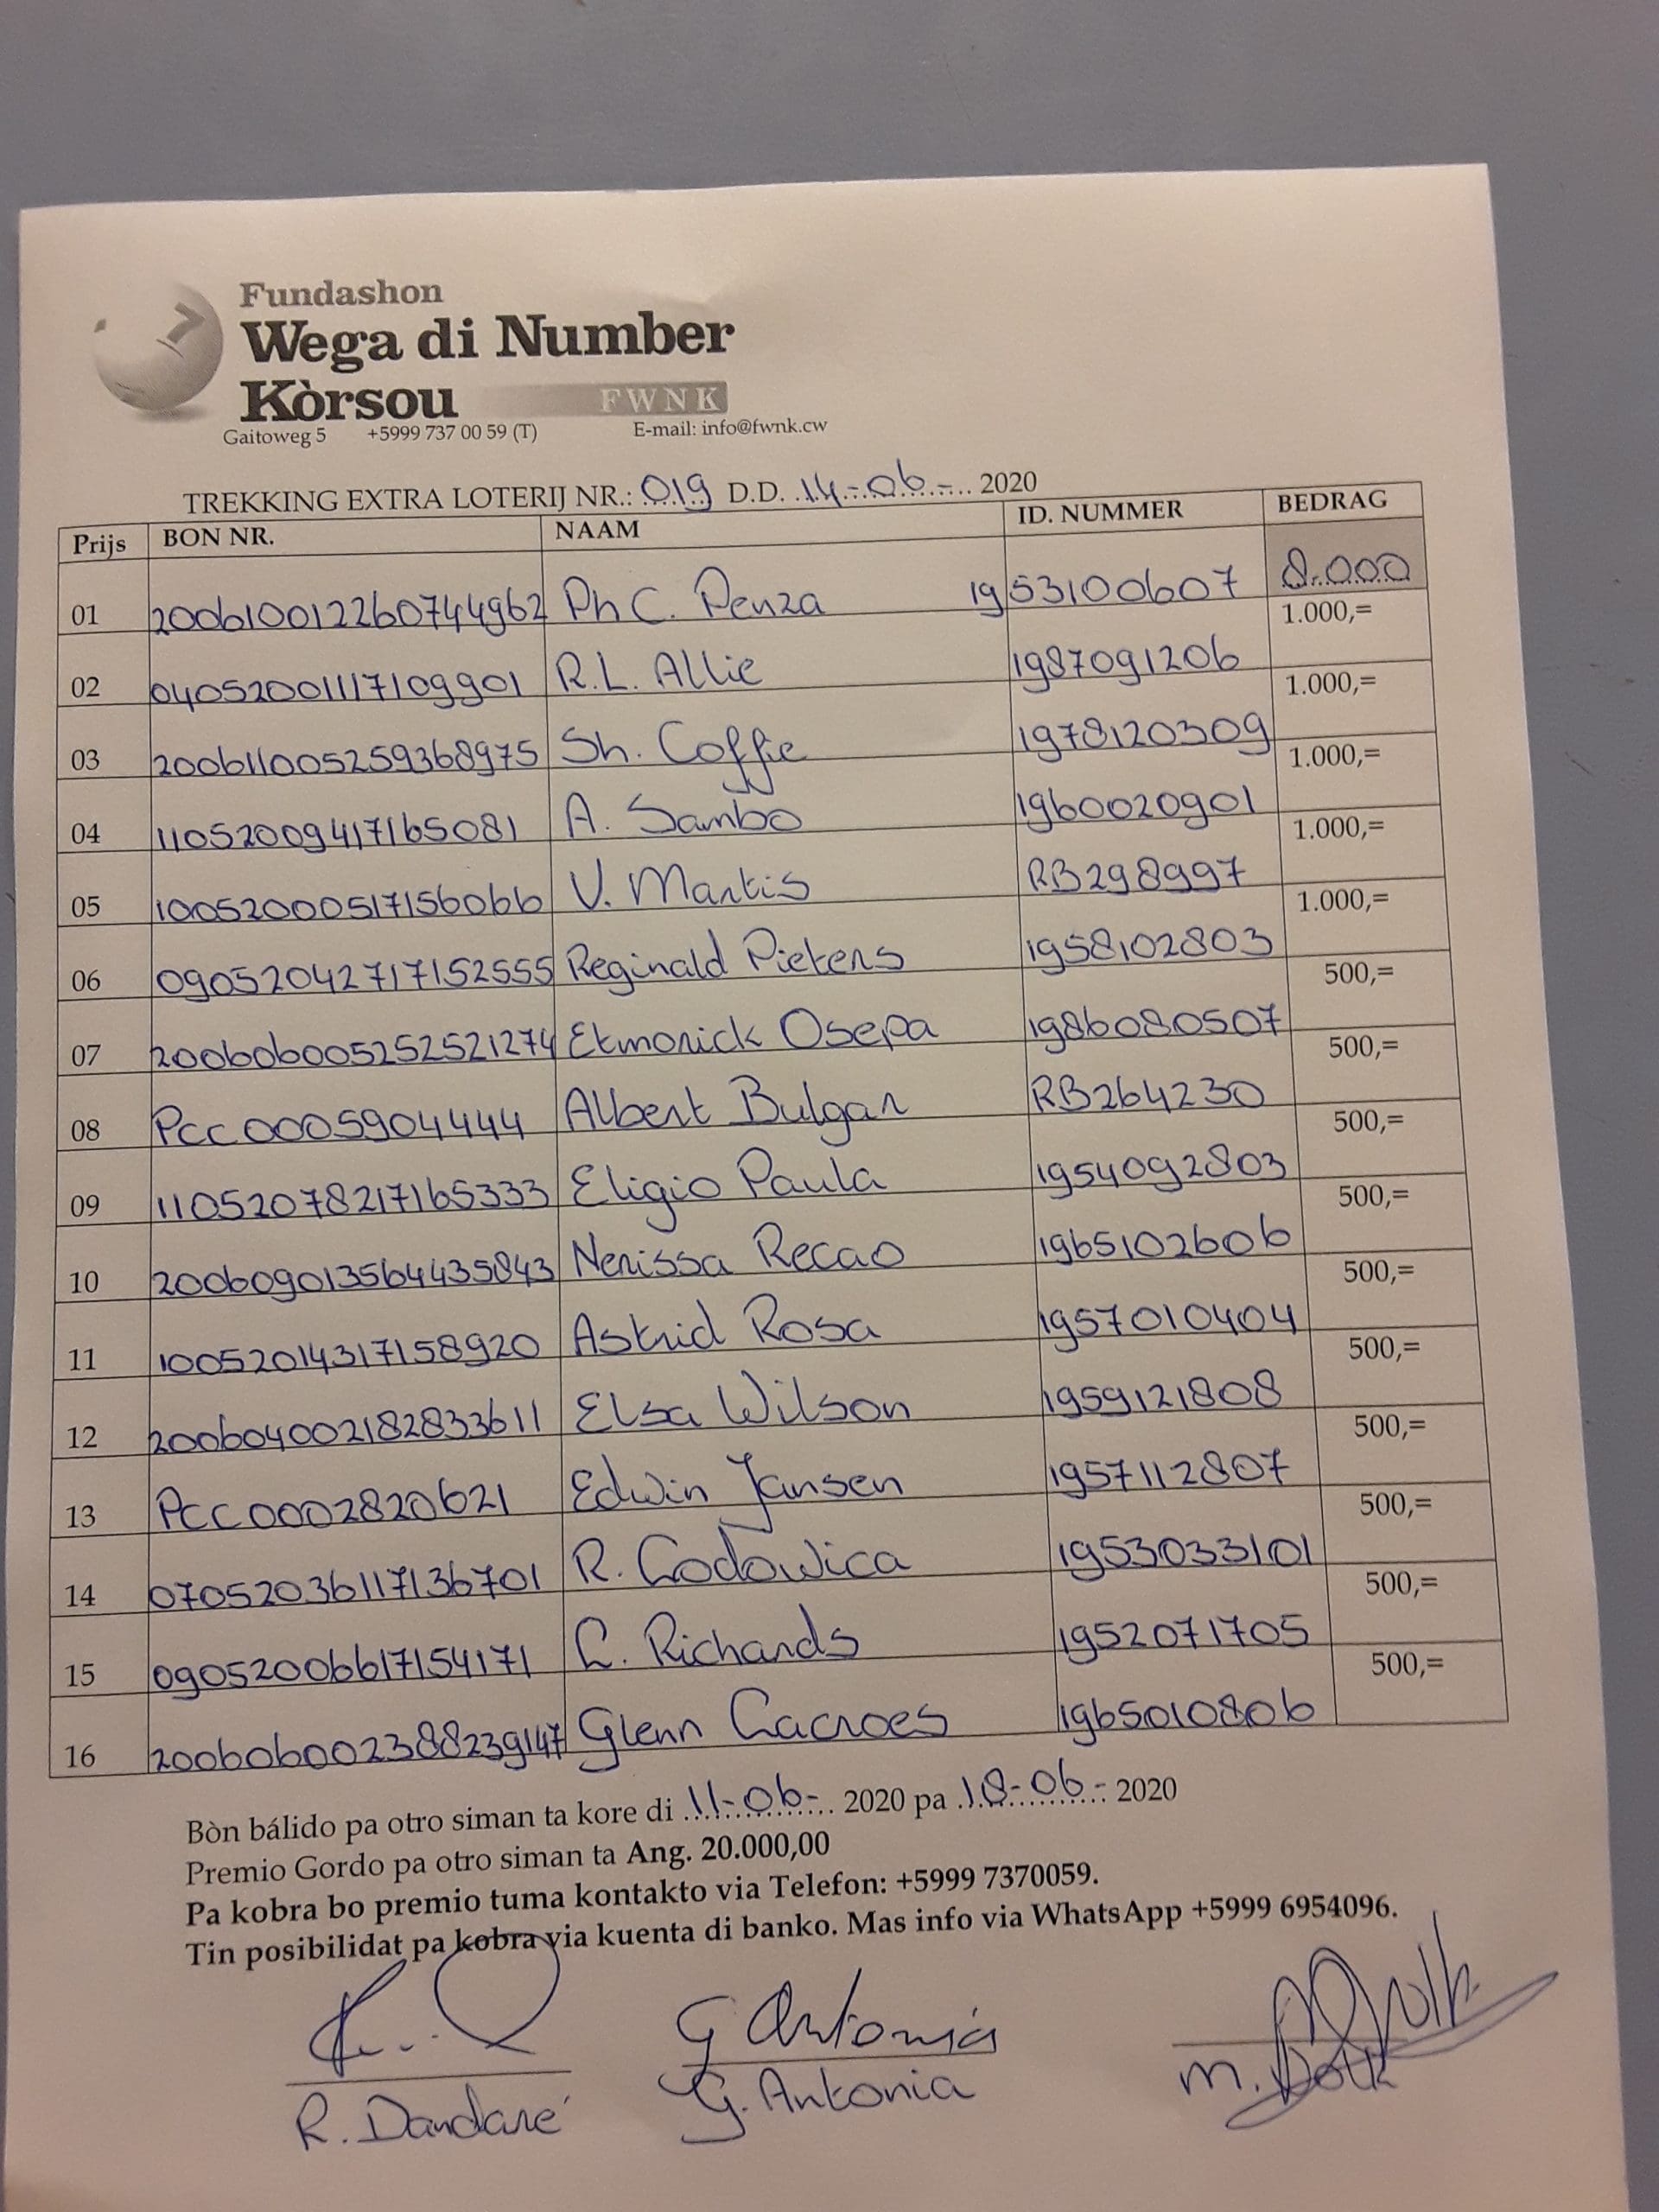 Fundashon
Wega di Number
Kòrsou FWNK
Gaitoweg 5 +5999 737 00 59 (T) E-mail: info@fwnk.cw
TREKKING EXTRA LOTERIJ NR.: 019 D.D. 14-06- 2020
Prijs BON NR. NAAM ID. NUMMER BEDRAG
01 200610012260744962 Ph C. Penza 1953100607 8.000
02 04052001117109901 R.L. Allie 1987091206 1.000,=
03 200611005259368975 Sh. Coffie 1978120309 1.000,=
04 11052009417165081 A. Sambo 1960020901 1.000,=
05 10052000517156066 V. Martis RB298997 1.000,=
06 09052042717152555 Reginald Pieters 1958102803 1.000,=
07 200606005252521274 Etmorick Osepa 1986080507 500,=
08 PCC0005904444 Albert Bulgar RB264230 500,=
09 11052078217165333 Eligio Paula 1954092803 500,=
10 200609013564435843 Nerissa Recao 1965102606 500,=
11 10052014317158920 Astrid Rosa 1957010404 500,=
12 200604002182833611 Elsa Wilson 1959121808 500,=
13 PCC0002820621 Edwin Jansen 1957112807 500,=
14 07052036117136701 R. Godowica 1953033101 500,=
15 09052006617154171 C. Richards 1952071705 500,=
16 200606002388239147 Glenn Cacroes 1965010806 500,=
Bòn bálido pa otro siman ta kore di 11-06- 2020 pa 18-06- 2020
Premio Gordo pa otro siman ta Ang. 20.000,00
Pa kobra bo premio tuma kontakto via Telefon: +5999 7370059.
Tin posibilidat pa kobra via kuenta di banko. Mas info via WhatsApp +5999 6954096.
G Antonia
R. Dandaré G. Antonia M.